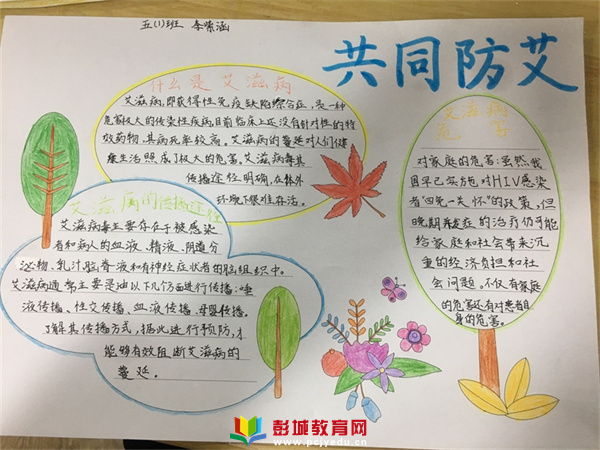 五(1)班 李嗦涵
共同防艾
什么是艾滋病
艾滋病,即获得性免疫缺陷综合症,是一种
危害极大的传染性疾病,目前临床上还没有针对性的特
效药物,其病死率较高。艾滋病的蔓延对人们健
康生活照成了极大的危害,艾滋病毒其
传播途径明确,在体外
环境下很难存活。
艾滋病的传播途径
艾滋病毒主要存在于被感染
者和病人的血液、精液、阴道分
泌物、乳汁脑脊液和有神经症状者的脑组织中。
艾滋病通常主要是油以下几方面进行传播:唾
液传播、性交传播、血液传播、母婴传播。
了解其传播方式,据此进行预防,才
能够有效阻断艾滋病的
蔓延。
艾滋病
危害
对家庭的危害:虽然我
国早已实施,对HIV感染
者“四免一关怀”的政策,但
晚期并发症的治疗仍可能
给家庭和社会带来沉
重的经济负担和社
会问题,不仅有家庭
的危害还有对患者自
身的危害。
彭城教育网
www.pcjyedu.cn